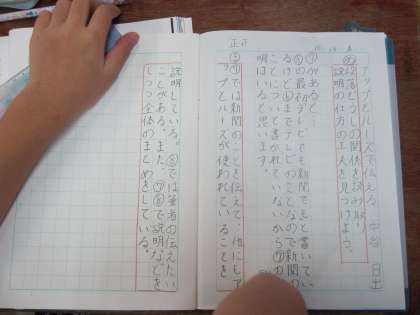 アップとルーズで伝える 中谷 日出
めだんらくどうしの関係を読み取り
説明の仕方の工夫を見つけよう。
⑦があると、
⑥の最初テレビでも新聞でもと書いてい
るけど⑥までテレビのことなので新聞の
ことについて書かれていないから⑦の
明はいると思います。
⑦では新聞のことを伝えて、他にもア
ップとルーズが使われていることを
説明している。⑧では筆者の伝えたい
ことがある。また、⑦⑧で説明などを
しつつ全体のまとめをしている。